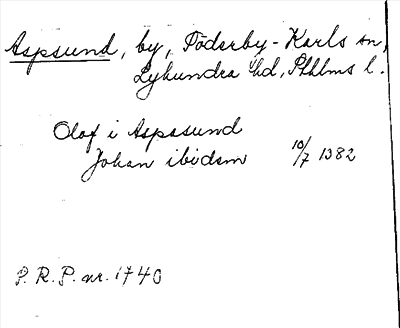 Aspsund, by, Föderby-Karls sn,
Lyhundra hd, Sthlms l.
Olof i Aspasund
Johan ibidem 10/7 1382
P. R. P. nr. 1740